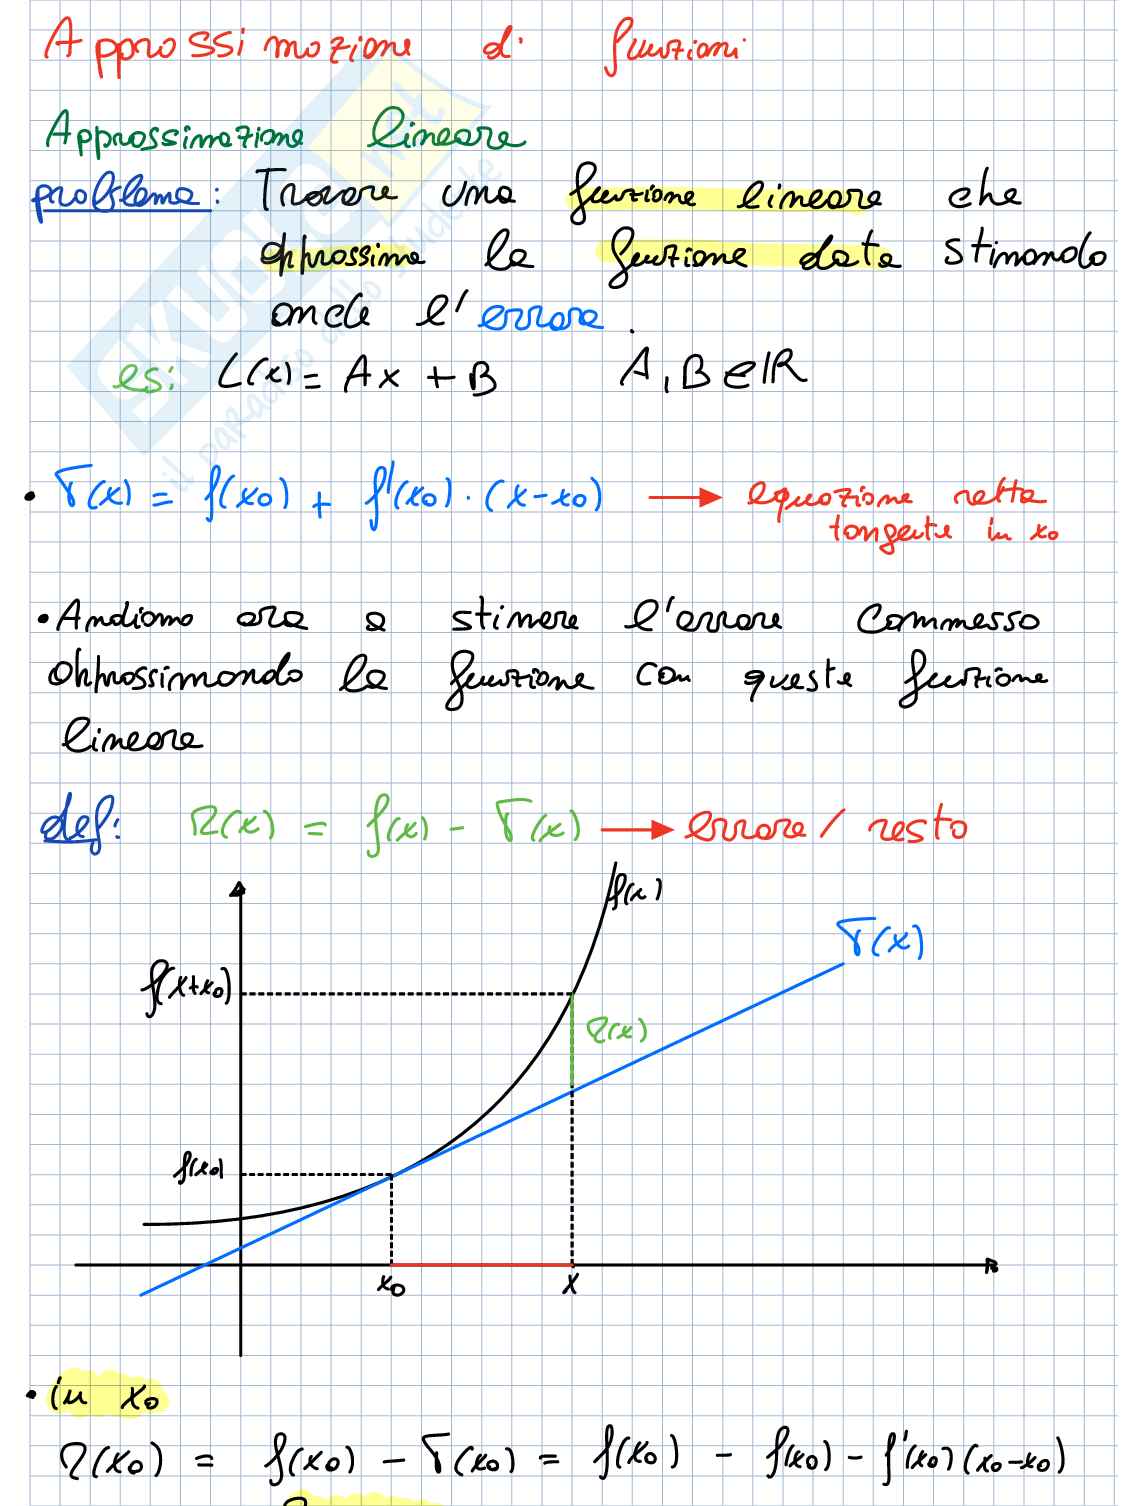 Approssimazione di funzioni
Approssimazione lineare
problema: Trovare una funzione lineare che
approssima la funzione data stimando
anche l'errore.
es: L(x) = Ax + B A, B ∈ ℝ
• T(x) = f(x₀) + f'(x₀) · (x-x₀) → equazione retta
tangente in x₀
• Andiamo ora a stimare l'errore commesso
approssimando la funzione con questa funzione
lineare
def: R(x) = f(x) - T(x) → errore / resto
f(x)
T(x)
f(x+x₀)
R(x)
f(x₀)
x₀ x
• in x₀
R(x₀) = f(x₀) - T(x₀) = f(x₀) - f(x₀) - f'(x₀)(x₀-x₀)
SKUOLA.net
il paradiso dello studente